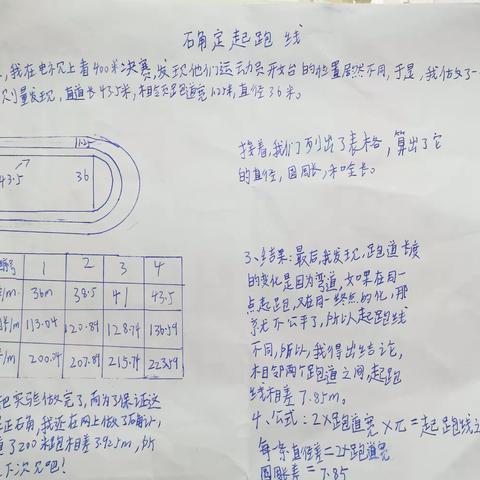 确定起跑线
我在电视上看400米决赛,发现他们运动员开始的位置居然不同,于是,我做了一
测量发现,直道长43.5米,相邻跑道宽1.25米,直径36米。
1.25
43.5
36
接着,我们列出了表格,算出了它
的直径,圆周长,和全长。
3、结果:最后,我发现,跑道长度
的变化是因为弯道,如果在同一
点起跑,又在同一终点的化,那
就不公平了,所以起跑线
不同,所以,我得出结论,
相邻两个跑道之间,起跑
线相差7.85m。
编号 1 2 3 4
/m 36m 38.5 41 43.5
/m 113.04 120.89 128.74 136.59
/m 200.04 207.89 215.74 223.59
把实验做完了,而为了保证这
是正确,我还在网上做了
道了200米跑相差3.925m,所
下次见吧!
4、公式:2×跑道宽×π=起跑线之
每一条直径差=2×跑道宽
圆周差=7.85